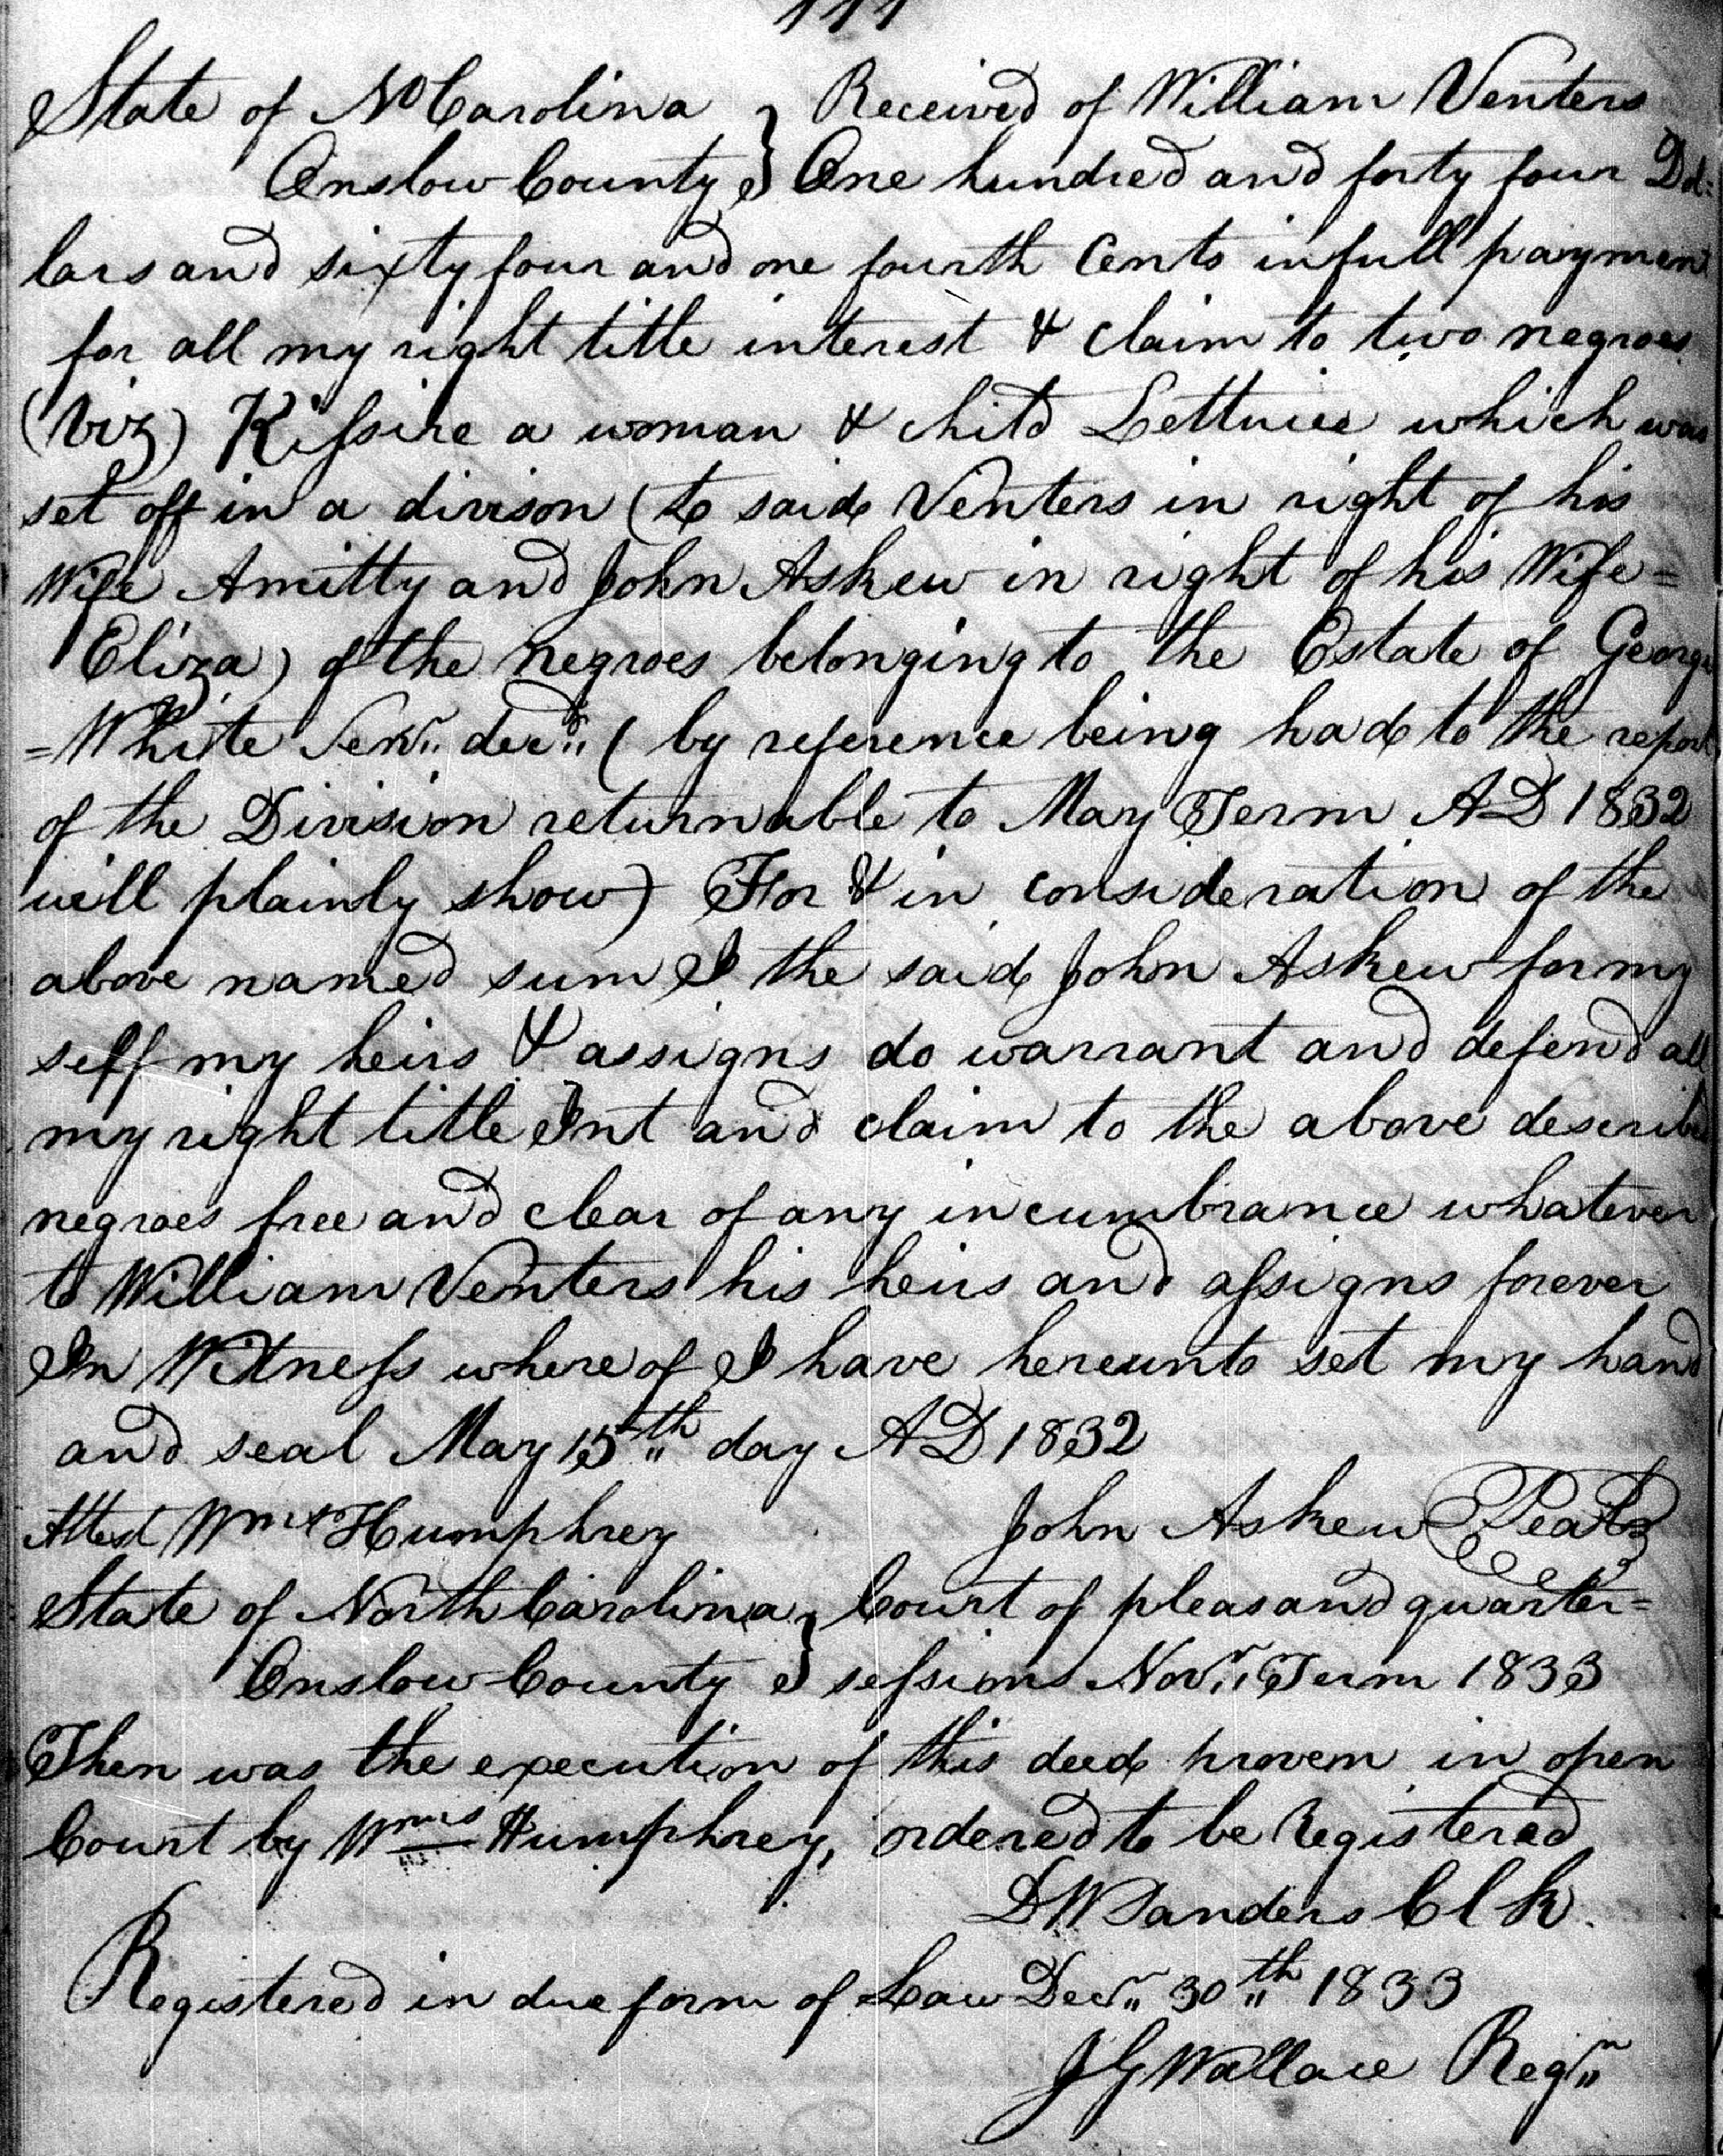 111
State of No Carolina } Received of William Venters
Onslow County } One hundred and forty four Dol:
lars and sixty four and one fourth Cents in full paymen
for all my right title interest & claim to two negroes
(viz) Kissire a woman & child Lettuce which was
set off in a divison (to said Venters in right of his
Wife Amitty and John Askew in right of his Wife =
Eliza) of the negroes belonging to the Estate of George
= White Senr. decd. (by reference being had to the report
of the Division returnable to May Term AD 1832
will plainly show) For & in consideration of the
above named sum I the said John Askew for my
self my heirs & assigns do warrant and defend all
my right title Int and claim to the above describe
negroes free and clear of any incumbrance whatever
to William Venters his heirs and assigns forever
In Witness where of I have hereunto set my hand
and seal May 15th day AD 1832
Attest Wm Humphrey John Askew Seal
State of North Carolina } Court of pleas and quarter =
Onslow County } sessions Novr. Term 1833
Then was the execution of this deed proven in open
Court by Wm Humphrey, ordered to be Registered
D W Sanders Clk.
Registered in due form of Law Decr. 30th 1833
J G Wallace Regr